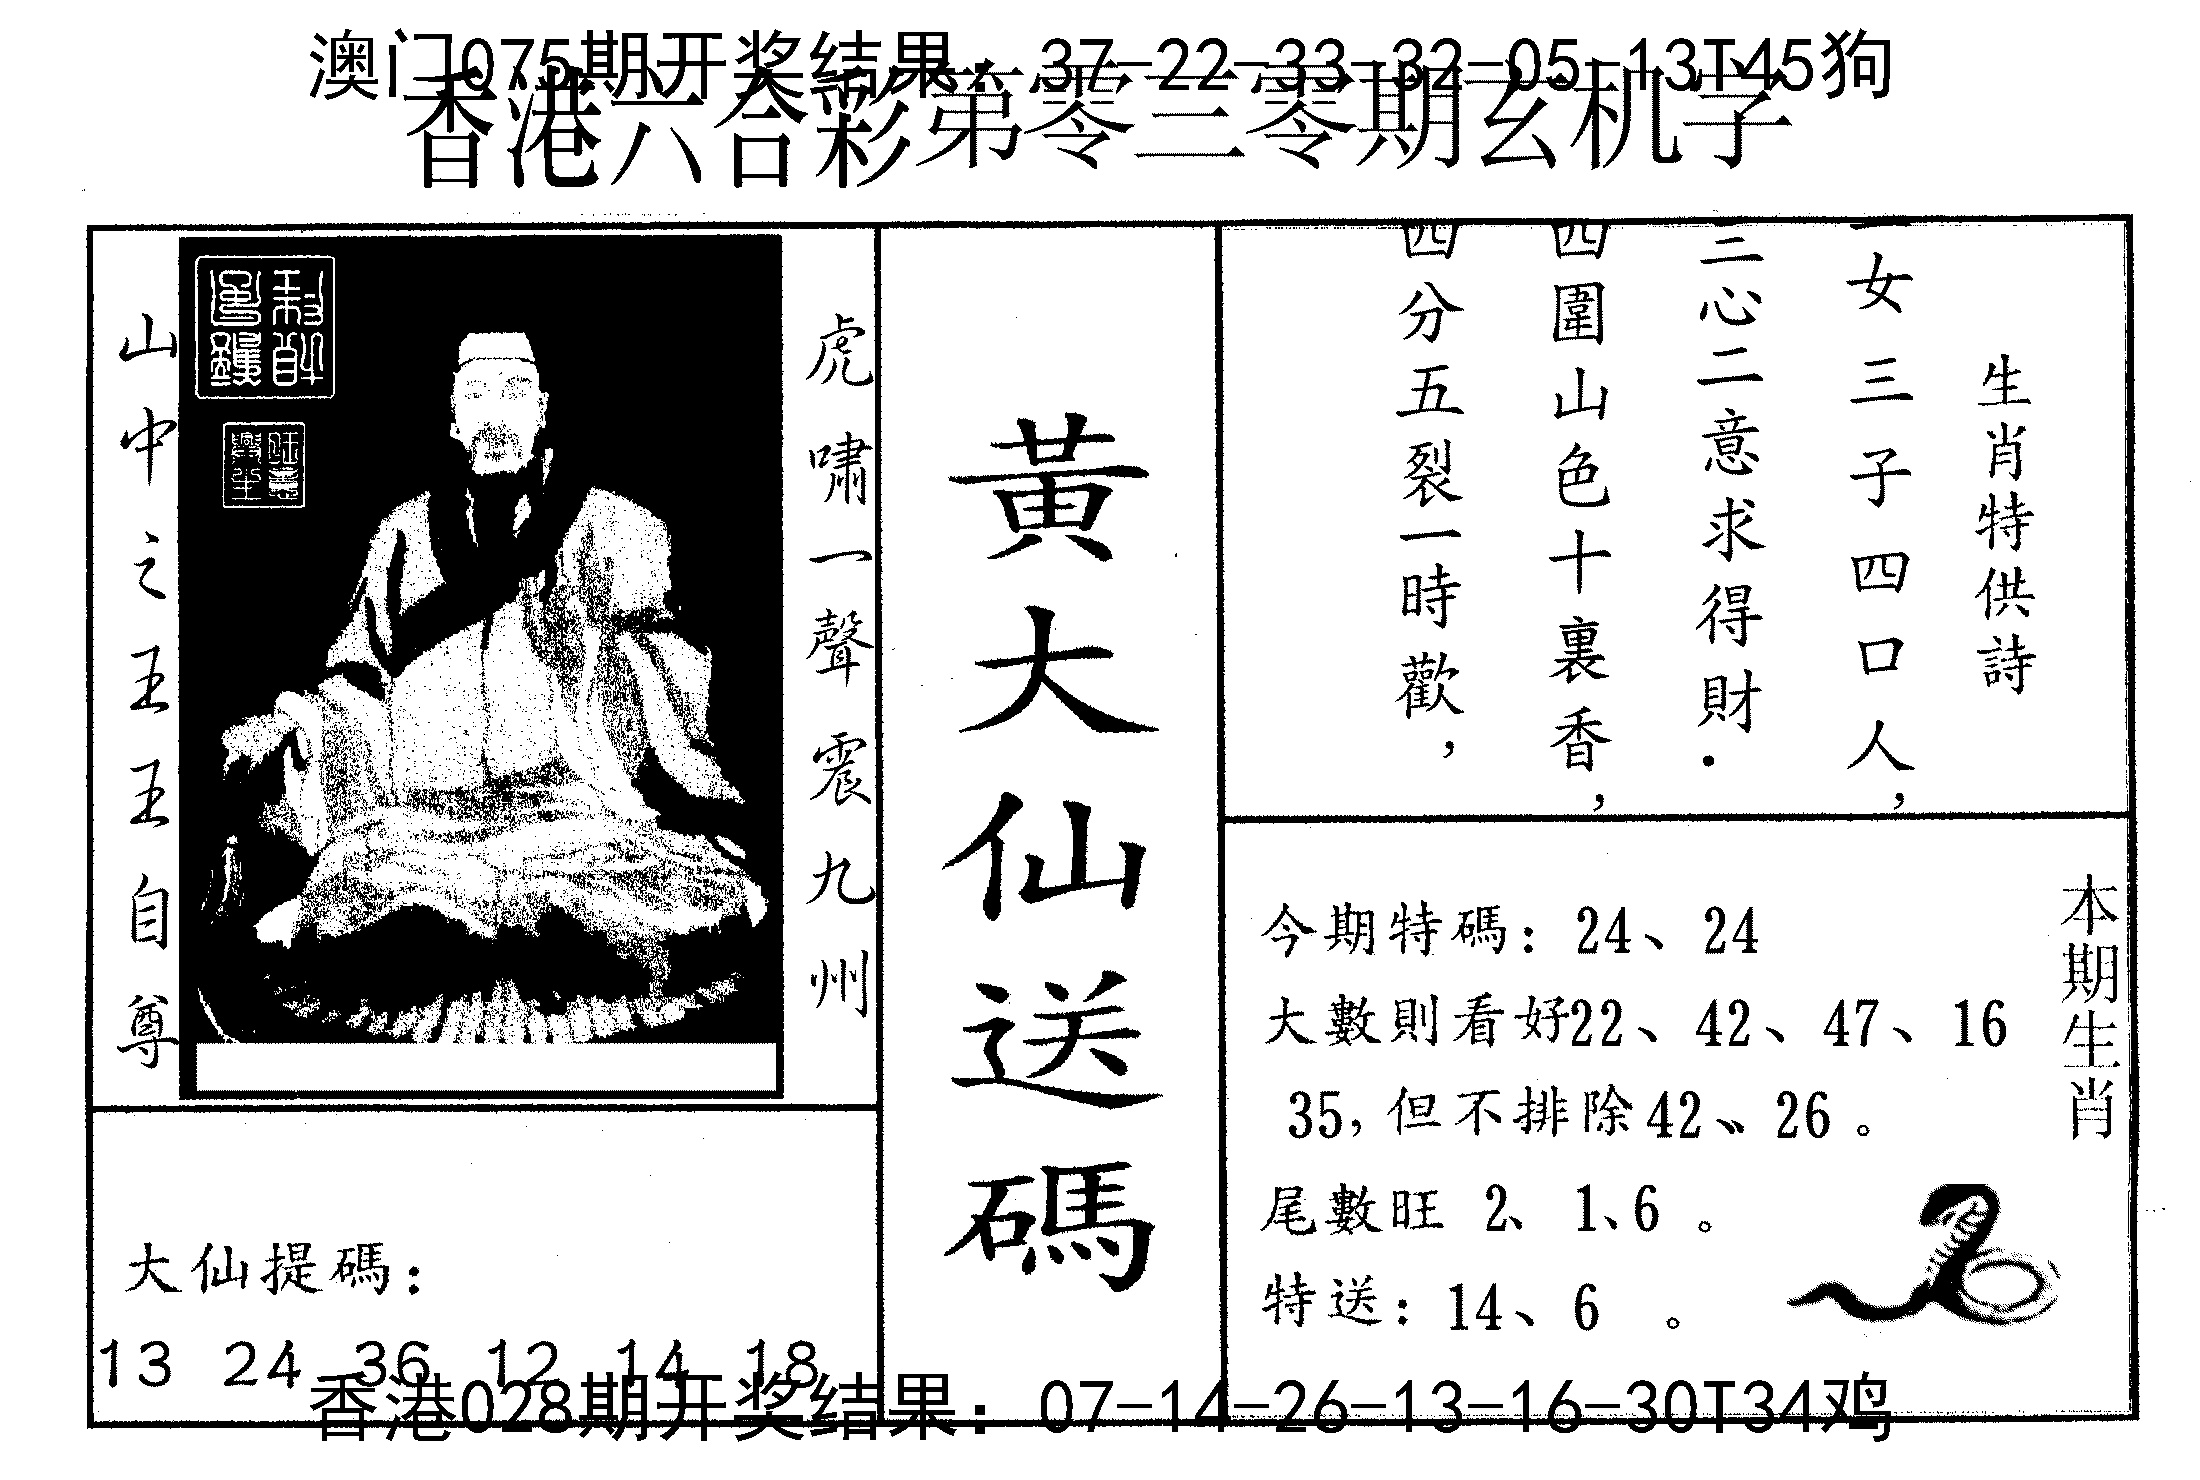 澳门075期开奖结果：37-22-33-32-05-13T45狗
香港六合彩第零三零期玄机字
生肖特供詩
一女三子四口人，
三心二意求得財．
四圍山色十裏香，
四分五裂一時歡，
黃大仙送碼
虎嘯一聲震九州
山中之王王自尊
本期生肖
今期特碼：24、24
大數則看好22、42、47、16
35，但不排除42、26。
尾數旺 2、1、6。
特送：14、6 。
大仙提碼：
13 24 36 12 14 18
香港028期开奖结果：07-14-26-13-16-30T34鸡